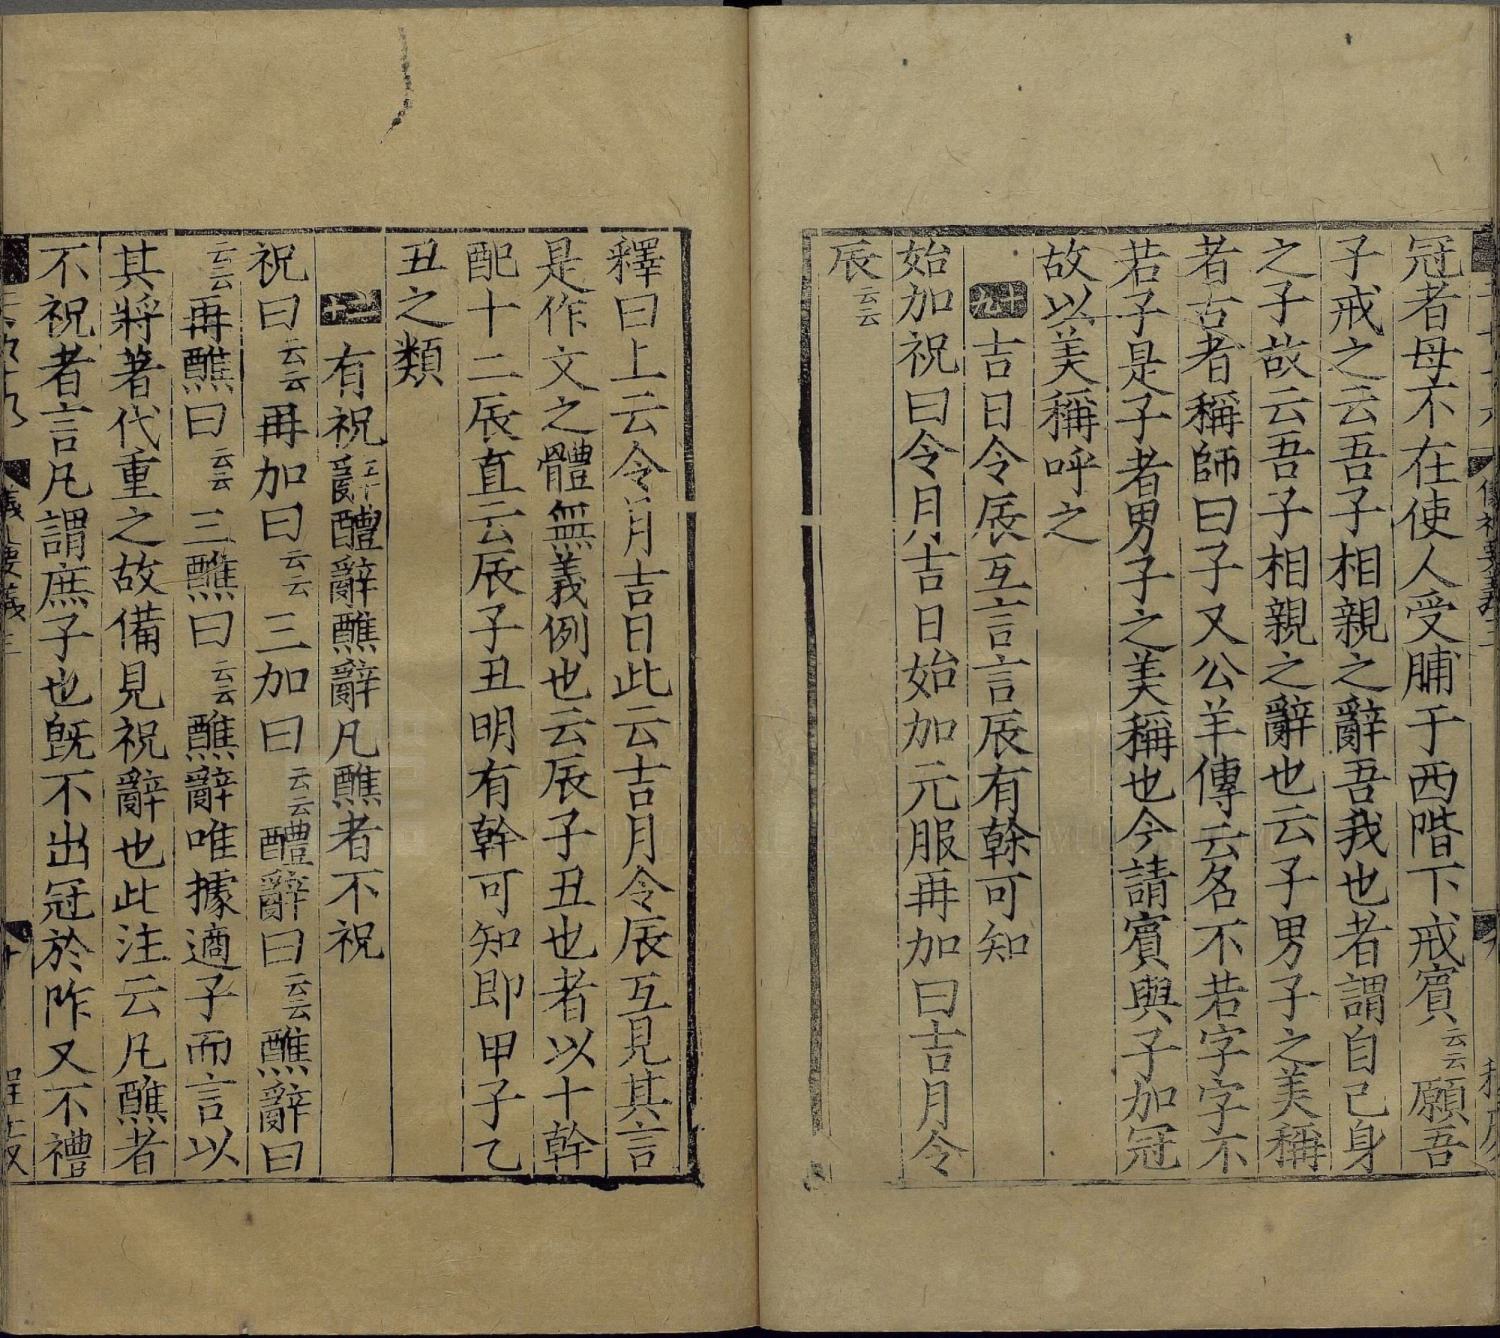 冠者母不在使人受脯于西階下戒賓云云願吾
子戒之云吾子相親之辭吾我也者謂自己身
之子故云吾子相親之辭也云子男子之美稱
者古者稱師曰子又公羊傳云名不若字字不
若子是子者男子之美稱也今請賓與子加冠
故以美稱呼之
十九吉日令辰互言言辰有榦可知
始加祝曰令月吉日始加元服再加曰吉月令
辰云云
釋曰上云令月吉日此云吉月令辰互見其言
是作文之體無義例也云辰子丑也者以十幹
配十二辰直云辰子丑明有幹可知即甲子乙
丑之類
二十有祝辭醴辭醮辭凡醮者不祝
祝曰云云再加曰云云三加曰云云醴辭曰云云醮辭曰
云云再醮曰云云三醮曰云云醮辭唯據適子而言以
其將著代重之故備見祝辭也此注云凡醮者
不祝者言凡謂庶子也旣不出冠於阼又不禮